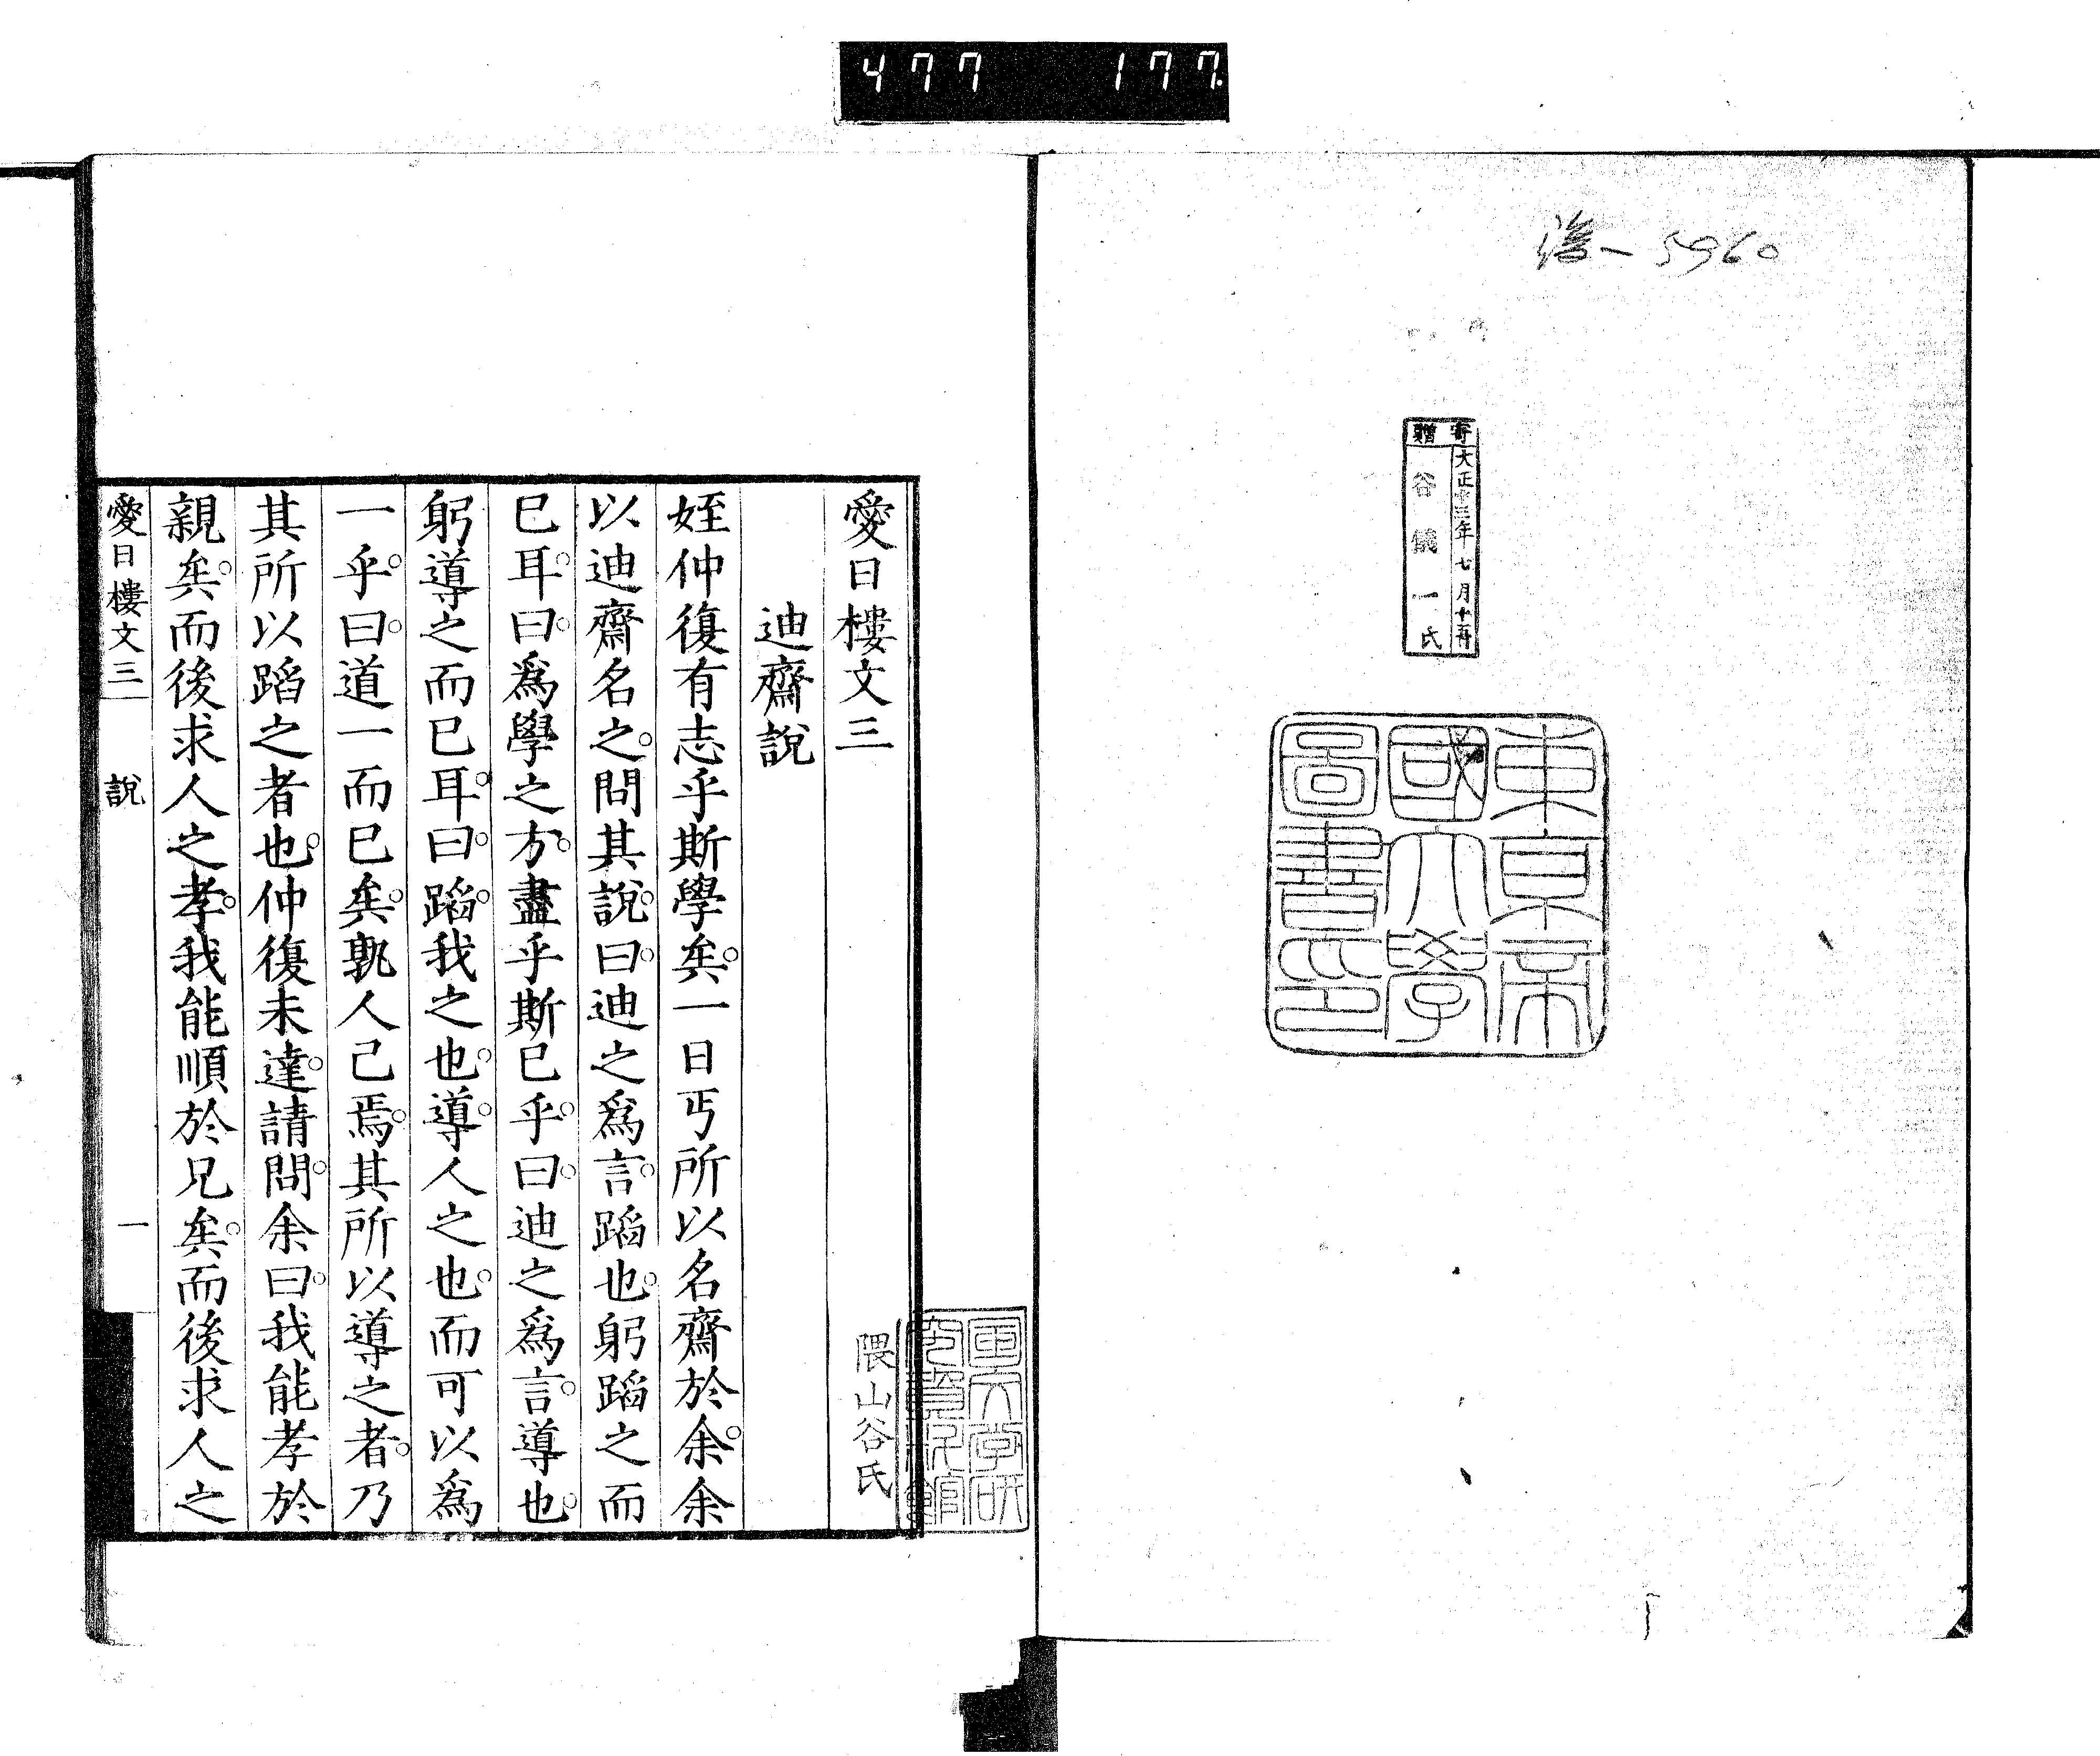 477 177
5960
寄贈
大正十三年七月十
谷儀一氏
東京帝
國大學
圖書印
愛日樓文三
隈山谷氏
迪齋說
姪仲復有志乎斯學矣。一日丐所以名齋於余。余
以迪齋名之。問其說。曰。迪之爲言。蹈也。躬蹈之而
已耳。曰。爲學之方。盡乎斯已乎。曰。迪之爲言。導也。
躬導之而已耳。曰。蹈。我之也。導。人之也。而可以爲
一乎。曰。道一而已矣。孰人己焉。其所以導之者。乃
其所以蹈之者也。仲復未達。請問。余曰。我能孝於
親矣。而後求人之孝。我能順於兄矣。而後求人之
愛日樓文三 說 一